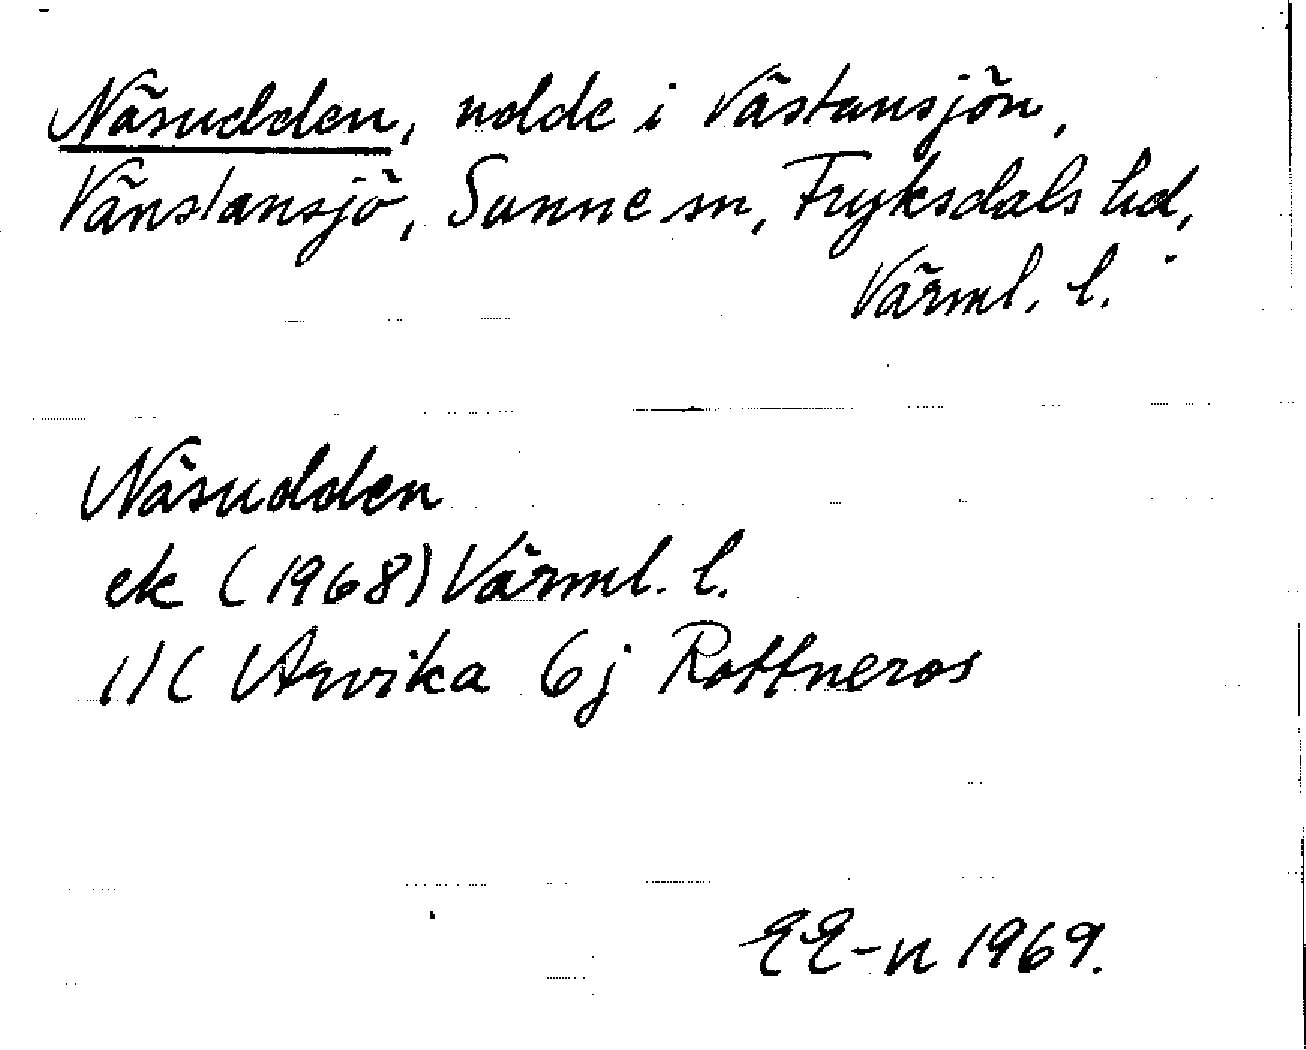 Näsudden, udde i Västansjön,
Vänstansjö, Sunne sn, Fryksdals hd,
Värml. l.
Näsudden
ek (1968) Värml. l.
11C Arvika 6j Rottneros
EE-n 1969.